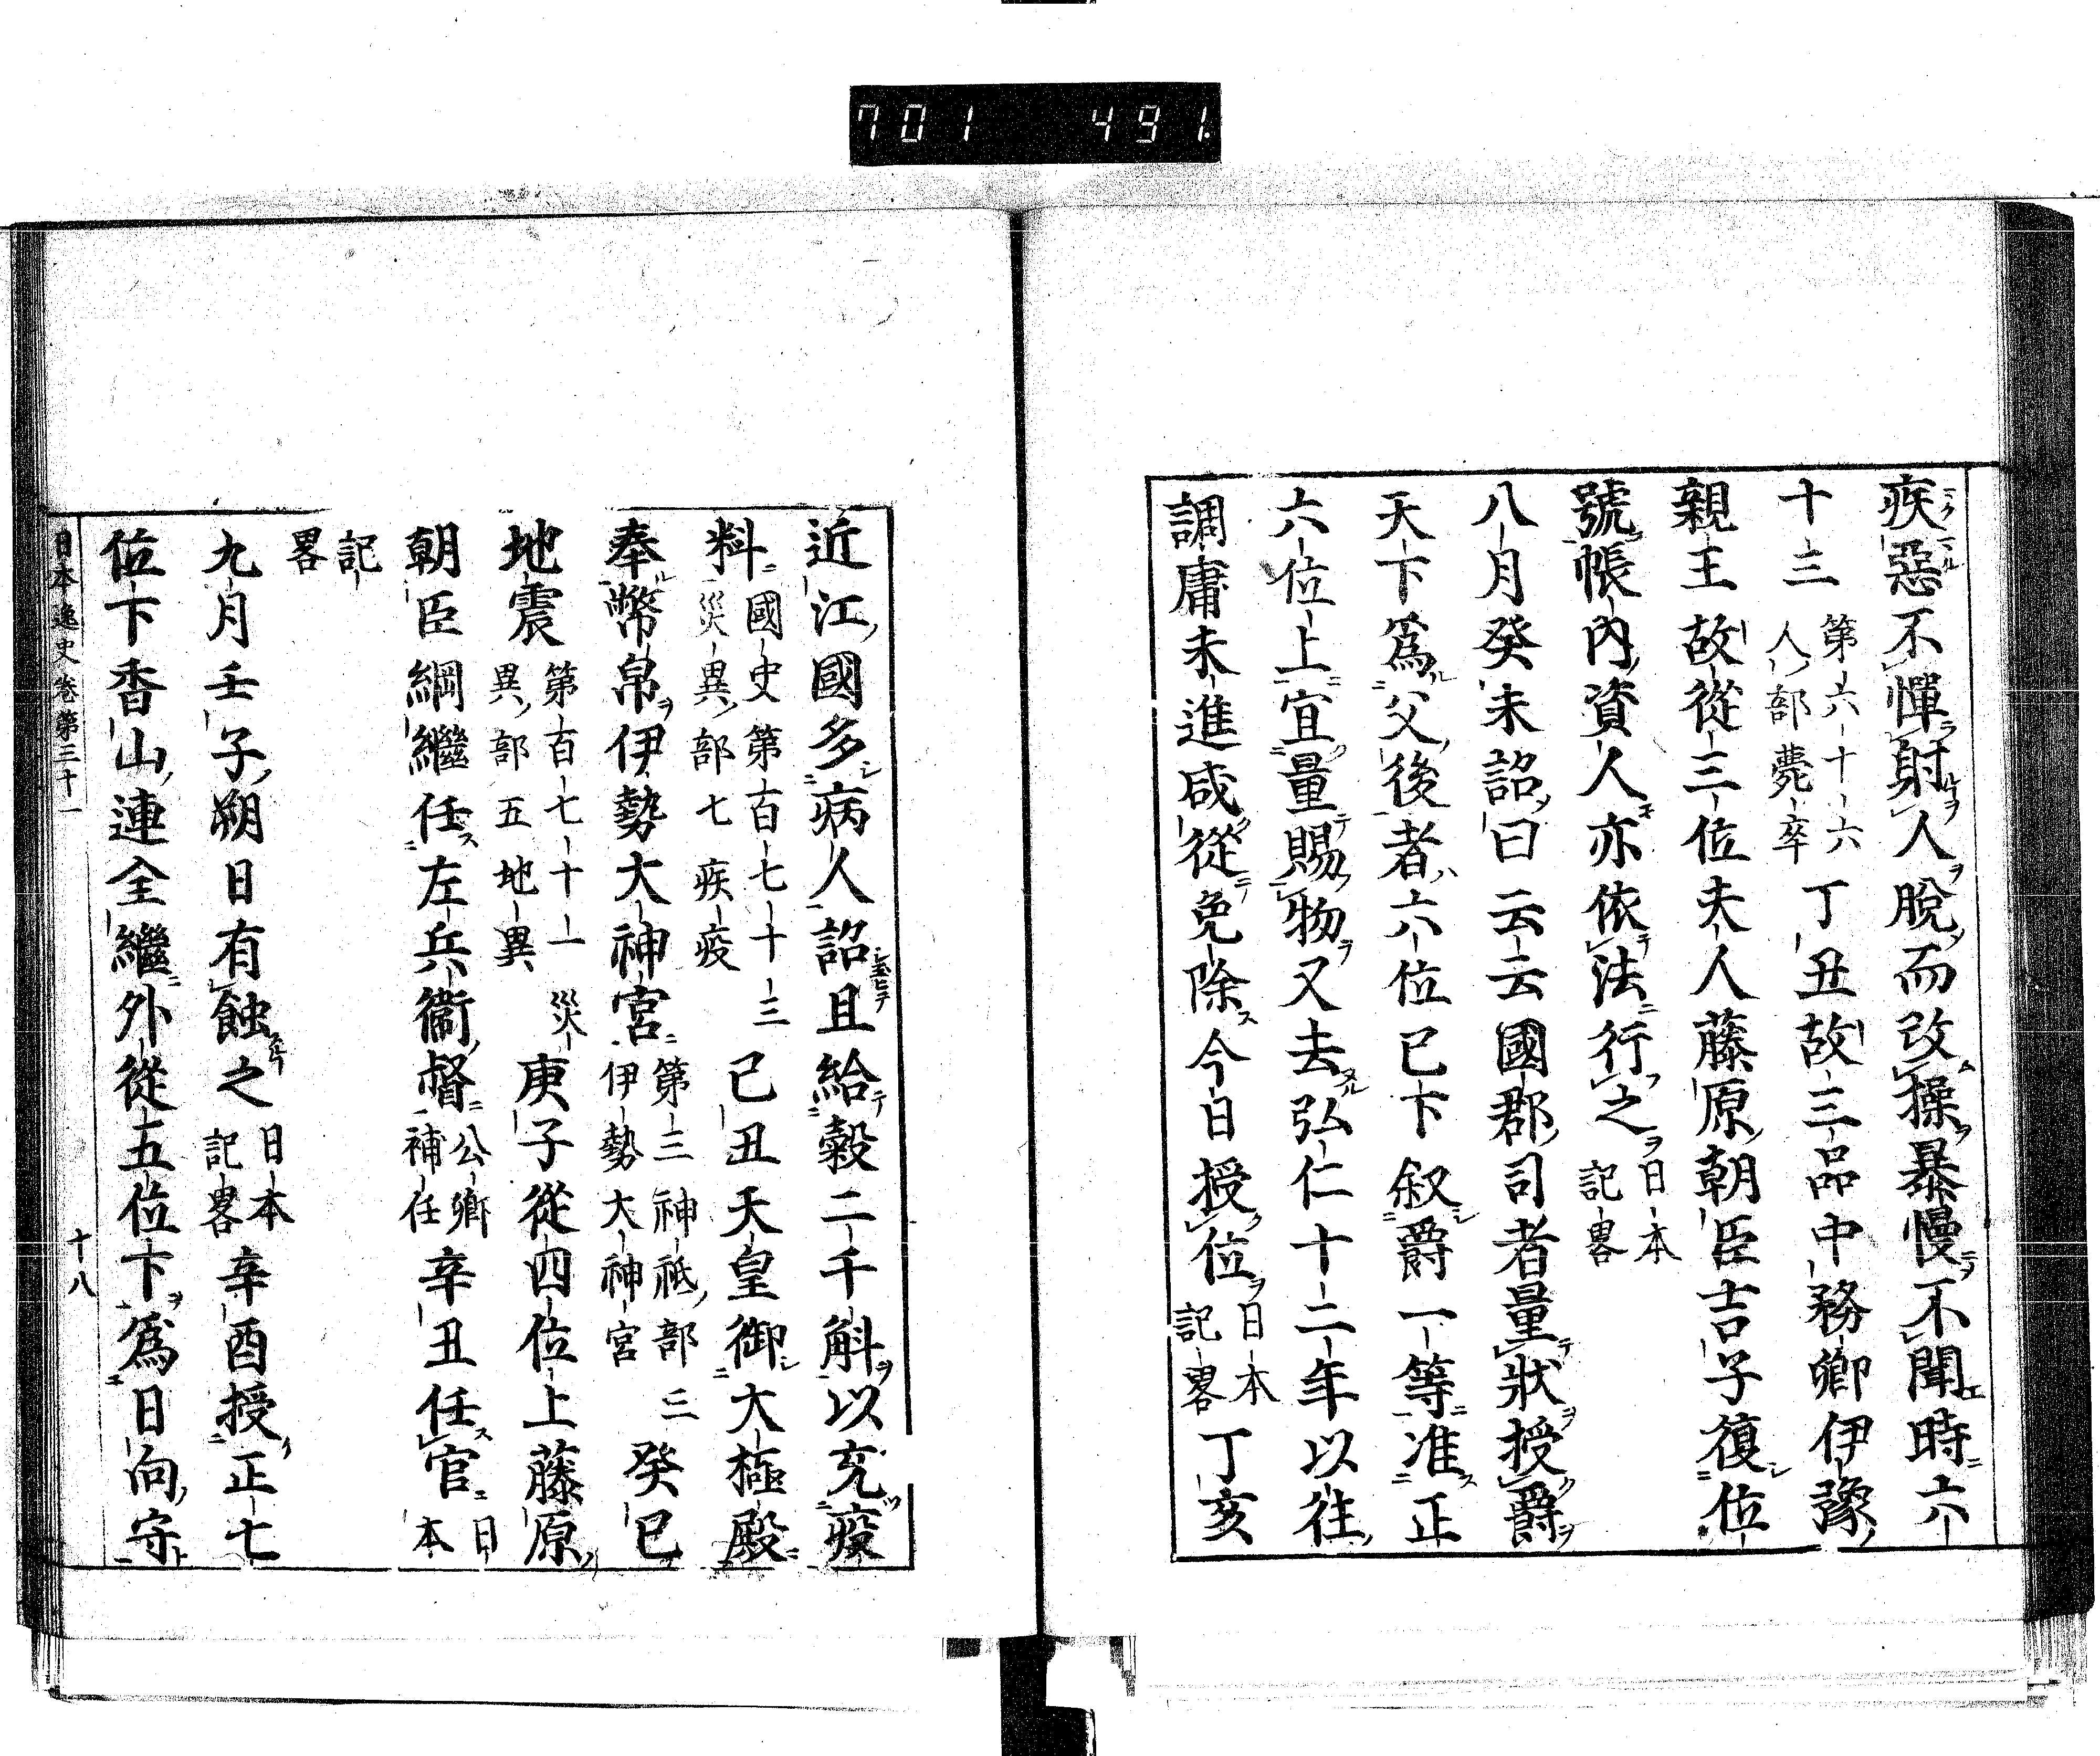 701 491
疾惡不憚射人脫而改操暴慢不聞時六
十三第六十六人部薨卒丁丑故三品中務卿伊豫
親王故從三位夫人藤原朝臣吉子復位
號帳內資人亦依法行之日本記畧
八月癸未詔曰云云國郡司者量狀授爵
天下爲父後者六位已下叙爵一等准正
六位上宜量賜物又去弘仁十二年以往
調庸未進咸從免除今日授位日本記畧丁亥
近江國多病人詔且給穀二千斛以充疫
料國史第百七十三災異部七疾疫己丑天皇御大極殿
奉幣帛伊勢大神宮第三神祇部三伊勢大神宮癸巳
地震第百七十一災異部五地異庚子從四位上藤原
朝臣綱繼任左兵衞督公卿補任辛丑任官日本
記畧
九月壬子朔日有蝕之日本記畧辛酉授正七
位下香山連全繼外從五位下爲日向守
日本逸史卷第三十一
十八